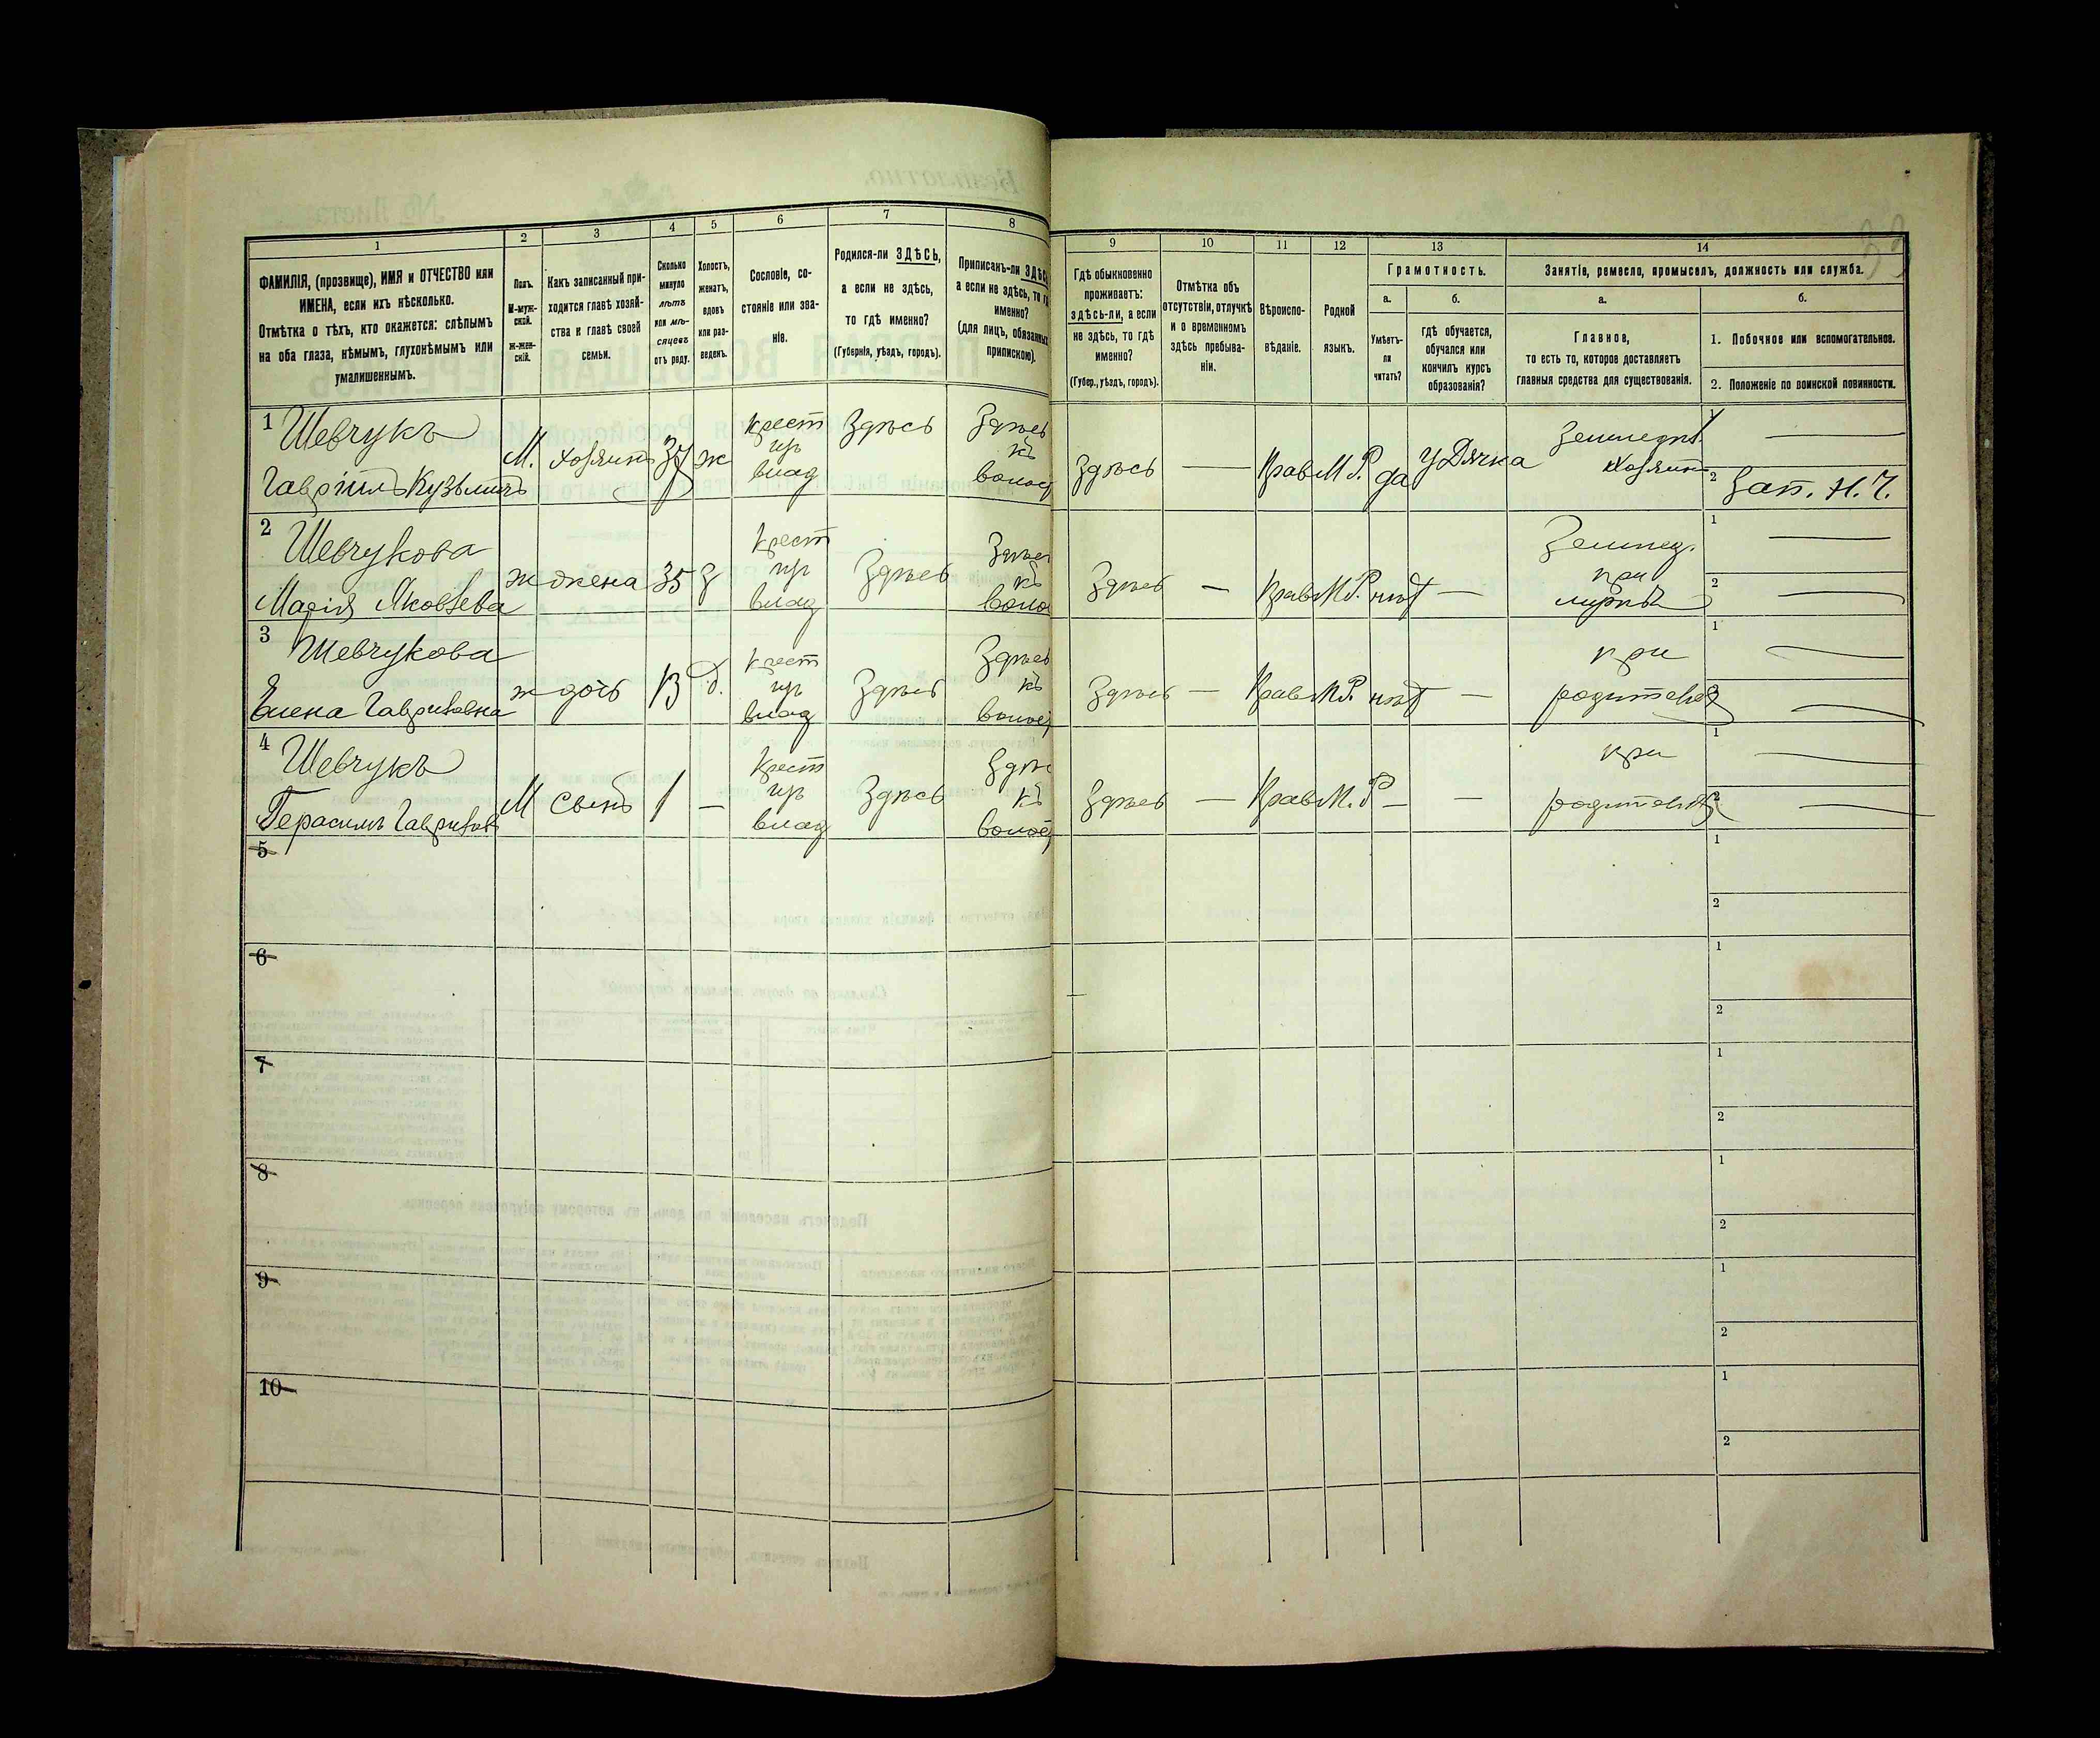 1
2
3
4
5
6
7
8
ФАМИЛІЯ, (прозвище), ИМЯ и ОТЧЕСТВО или
ИМЕНА, если ихъ нѣсколько.
Отмѣтка о тѣхъ, кто окажется: слѣпымъ
на оба глаза, нѣмымъ, глухонѣмымъ или
умалишеннымъ.
Полъ.
М-муж-
ской.
Ж-жен-
скій.
Какъ записанный при-
ходится главѣ хозяй-
ства и главѣ своей
семьи.
Сколько
минуло
лѣтъ
или мѣ-
сяцевъ
отъ роду.
Холостъ,
женатъ,
вдовъ
или раз-
веденъ.
Сословіе, со-
стояніе или зва-
ніе.
Родился-ли ЗДѢСЬ,
а если не здѣсь,
то гдѣ именно?
(Губернія, уѣздъ, городъ).
Приписанъ-ли ЗДѢСЬ
а если не здѣсь, то гдѣ
именно?
(для лицъ, обязанныхъ
припискою).
9
10
11
12
13
14
Гдѣ обыкновенно
проживаетъ:
здѣсь-ли, а если
не здѣсь, то гдѣ
именно?
(Губер., уѣздъ, городъ).
Отмѣтка объ
отсутствіи, отлучкѣ
и о временномъ
здѣсь пребыва-
ніи.
Вѣроиспо-
вѣданіе.
Родной
языкъ.
Грамотность.
а.
Умѣетъ-
ли
читать?
б.
гдѣ обучается,
обучался или
кончилъ курсъ
образованія?
Занятіе, ремесло, промыселъ, должность или служба.
а.
Главное,
то есть то, которое доставляетъ
главныя средства для существованія.
б.
1. Побочное или вспомогательное.
2. Положеніе по воинской повинности.
1 Шевчукъ
Гавріилъ Кузьмичъ
М. хозяинъ 37 ж
Крест
изъ
влад
Здѣсь
Здѣсь
къ
волост
Здѣсь — Прав М.Р. да У Дячка
Земледѣл
хозяинъ
1 —
2 Зап. Н. Ч.
2 Шевчукова
Марія Яковлева
ж жена 35 з
Крест
изъ
влад
Здѣсь
Здѣсь
къ
воло
Здѣсь — Прав М.Р. нѣт —
Землед.
при
мужѣ
1 —
2 —
3 Шевчукова
Елена Гаврилова
ж дочь 13 д.
Крест
изъ
влад
Здѣсь
Здѣсь
къ
волос
Здѣсь — Прав М.Р. нѣт —
при
родителях
1 —
2 —
4 Шевчукъ
Герасимъ Гаврилов
М сынъ 1 —
Крест
изъ
влад
Здѣсь
Здѣс
къ
волос
Здѣсь — Прав М.Р — —
при
родителях
1 —
2 —
5
1
2
6
1
2
7
1
2
8
1
2
9
1
2
10
1
2